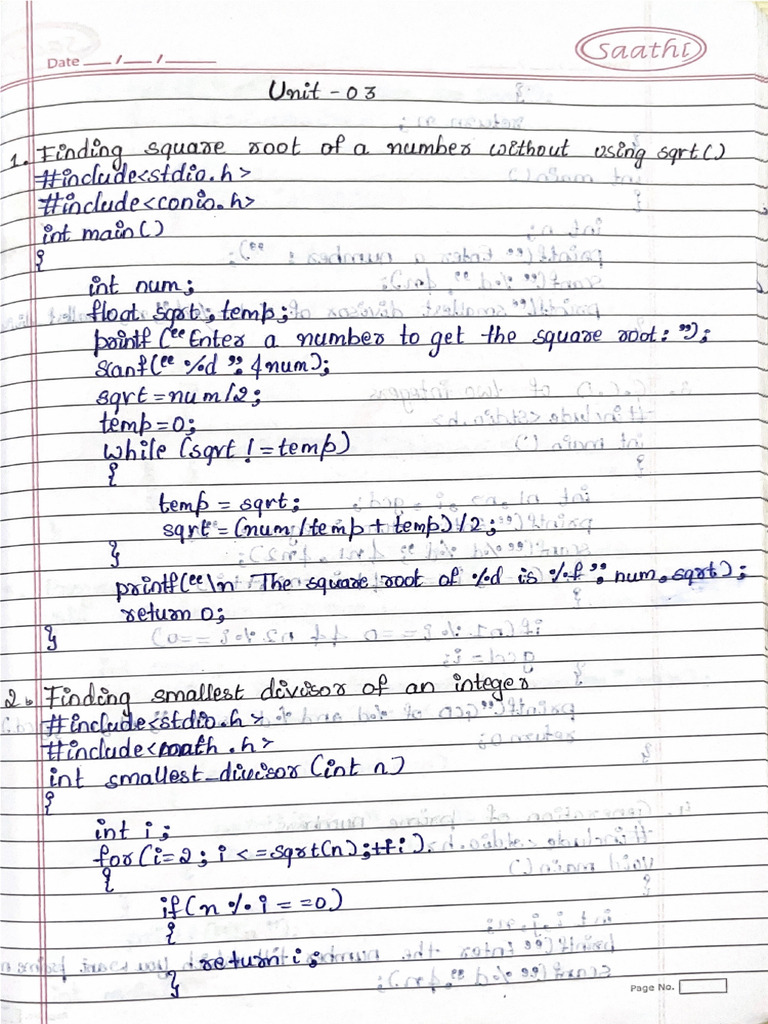 Saathi
Date __/__/____
Unit - 03
1. Finding square root of a number without using sqrt()
#include<stdio.h>
#include<conio.h>
int main()
{
int num;
float sqrt, temp;
printf("Enter a number to get the square root: ");
scanf("%d", &num);
sqrt = num/2;
temp = 0;
while (sqrt != temp)
{
temp = sqrt;
sqrt = (num/temp + temp)/2;
}
printf("\n The square root of %d is %f", num, sqrt);
return 0;
}
2. Finding smallest divisor of an integer
#include<stdio.h>
#include<math.h>
int smallest_divisor(int n)
{
int i;
for(i=2; i<=sqrt(n); ++i)
{
if(n % i ==0)
{
return i;
}
Page No.